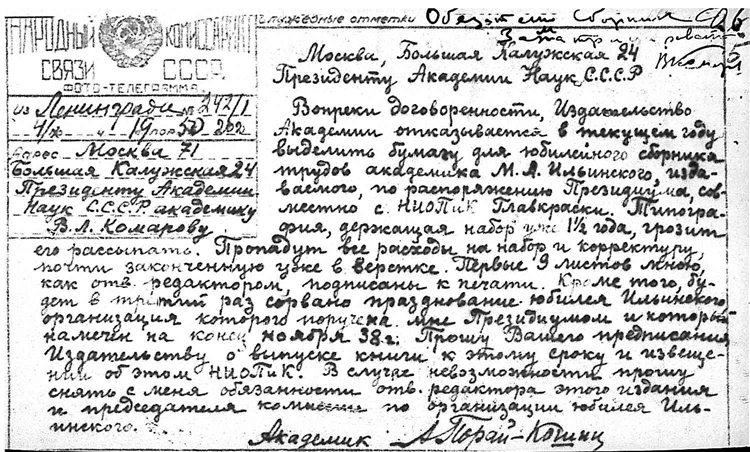 Служебные отметки
НАРОДНЫЙ КОМИССАРИАТ
СВЯЗИ СССР
ФОТО-ТЕЛЕГРАММА
из Ленинграда № 242/1
адрес Москва 71
Большая Калужская 24
Президенту Академии
Наук С.С.С.Р. академику
В.Л. Комарову
Москва, Большая Калужская 24
Президенту Академии Наук С.С.С.Р
Вопреки договоренности, Издательство
Академии отказывается в текущем году
выделить бумагу для юбилейного сборника
трудов академика М.А. Ильинского, изда-
ваемого, по распоряжению Президиума, сов-
местно с НИОПиК Главкраски. Типогра-
фия, держащая набор уже 1½ года, грозит
его рассыпать. Пропадут все расходы на набор и корректуру,
почти законченную уже в верстке. Первые 9 листов мною,
как отв. редактором, подписаны к печати. Кроме того, бу-
дет в третий раз сорвано празднование юбилея Ильинского,
организация которого поручена мне Президиумом и который
намечен на конец ноября 38 г. Прошу Вашего предписания
Издательству о выпуске книги к этому сроку и извеще-
нии об этом НИОПиК. В случае невозможности прошу
снять с меня обязанности отв. редактора этого издания
и председателя комиссии по организации юбилея Иль-
инского.
Академик А Порай-Кошиц